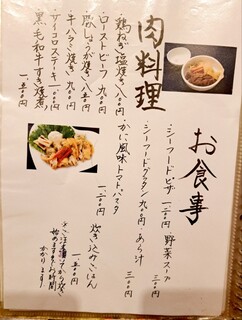 肉料理
・鶏ねぎ塩焼き 八〇〇
・ローストビーフ 九〇〇
・豚しょうが焼き 八五〇
・牛ハラミ焼き 九〇〇
・サイコロステーキ 一一〇〇
・黒毛和牛すき焼煮
一、五〇〇
お食事
・シーフードピザ 一、二〇〇
・シーフードグラタン 九〇〇
・かに風味トマトパスタ
一、二〇〇
野菜スープ
三五〇
・あら汁
三〇〇
炊き込みごはん
一、五〇〇
ご注文頂いてから炊き
始めますのでお時間
かかります。